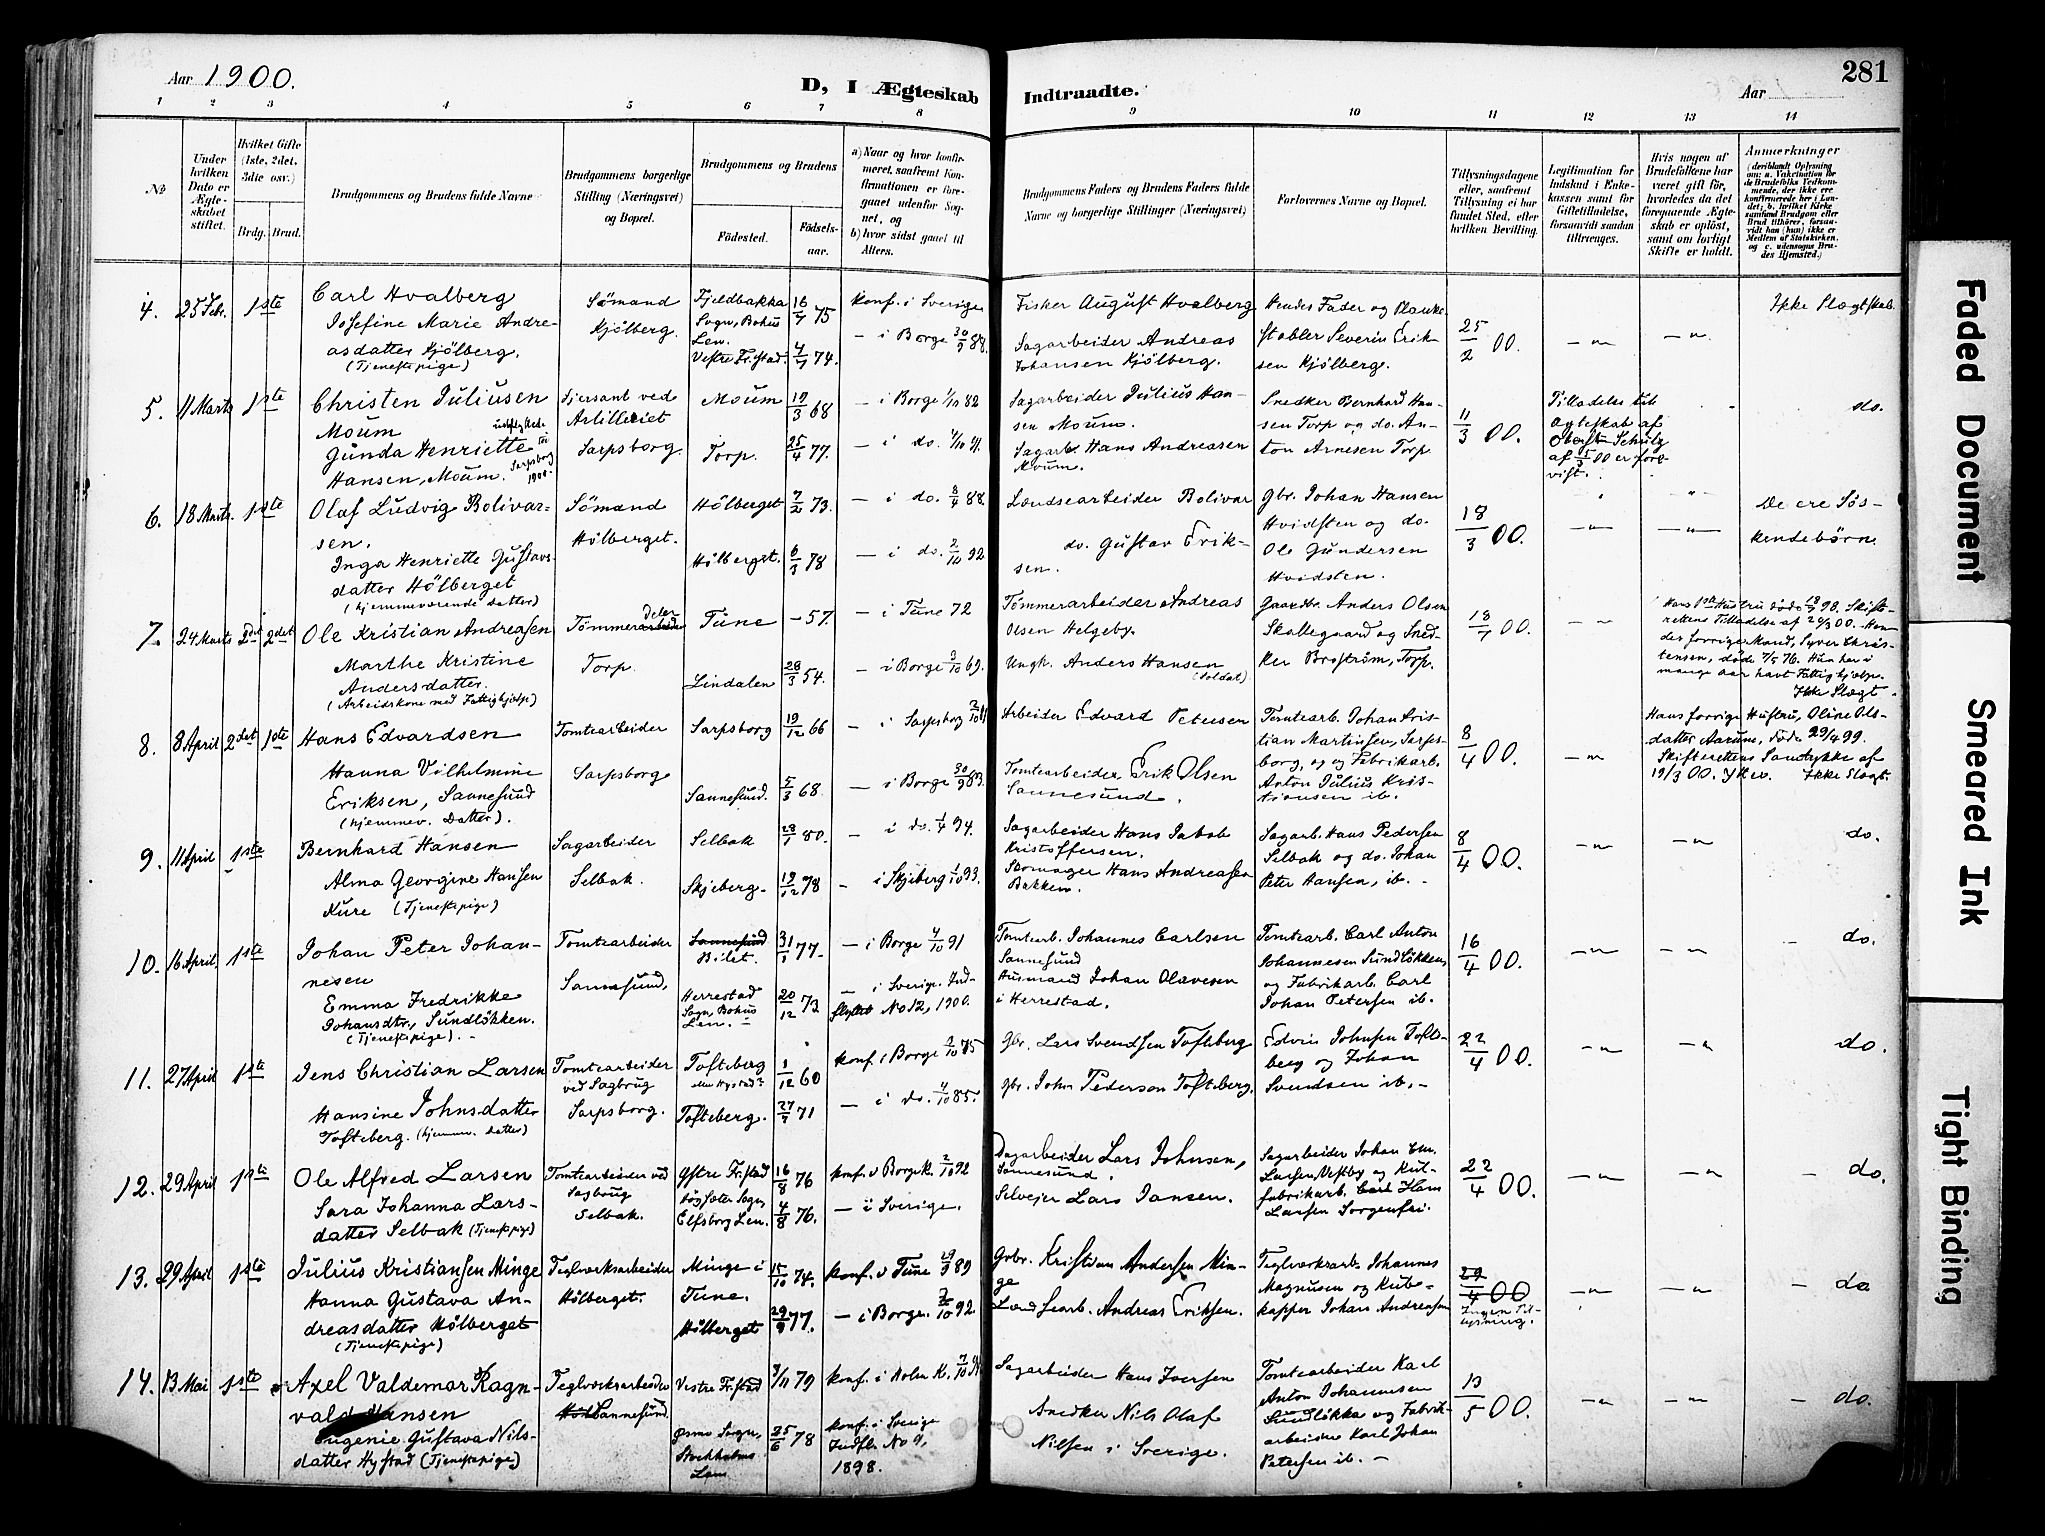 Aar 1900.
D, I Ægteskab
Indtraadte.
Aar
281
1 2 3 4 5 6 7 8 9 10 11 12 13 14
No
Under hvilken Dato er Ægteskabet stiftet.
Hvilket Gifte (1ste, 2det, 3die osv.)
Brdg. Brud.
Brudgommens og Brudens fulde Navne
Brudgommens borgerlige Stilling (Næringsvei) og Bopæl.
Brudgommens og Brudens
Fødested.
Fødselsaar.
a) Naar og hvor konfirmeret, saafremt Konfirmationen er foregaaet udenfor Sognet, og
b) hvor sidst gaaet til Alters.
Brudgommens Faders og Brudens Faders fulde Navne og borgerlige Stillinger (Næringsvei)
Forlovernes Navne og Bopæl.
Tillysningsdagene eller, saafremt Tillysning ei har fundet Sted, efter hvilken Bevilling.
Legitimation for Indskud i Enkekassen samt for Giftetilladelse, forsaavidt saadan tiltrænges.
Hvis nogen af Brudefolkene har været gift før, hvorledes da det foregaaende Ægteskab er opløst, samt om lovligt Skifte er holdt.
Anmærkninger
4. 25 Febr. 1ste
Carl Hvalberg
Josefine Marie Andre-
asdatter Kjölberg.
(Tjenestepige)
Sömand
Kjölberg.
Fjeldbakka
Sogn, Bohus
Len.
Vestre Fr.stad.
16/7 75
4/7 74.
konf. i Sverige
— i Borge 30/9 88.
Fisker August Hvalberg
Sagarbeider Andreas
Johansen Kjölberg.
Hendes Fader og Planke-
stabler Severin Erik-
sen Kjölberg.
25/2 00.
— „ —
— „ —
Ikke Slægtskab.
5. 11 Marts 1ste
Christen Juliusen
Moum
Gunda Henriette
Hansen, Moum.
Sarpsborg
1900
Sjersant ved
Artilleriet
Sarpsborg.
Moum
Torp.
19/3 68
25/4 77.
— i Borge 1/10 82
— i do. 4/10 91.
Sagarbeider Julius Han-
sen Moum.
Sagarb. Hans Andreasen
Moum.
Snedker Bernhard Han-
sen Torp og do. An-
ton Arnesen Torp
11/3 00.
Tilladelse til
Ægteskab af
Oberst Schulz
af 5/3 00 er fore-
vist.
do.
6. 18 Marts. 1ste
Olaf Ludvig Bolivar-
sen.
Inga Henriette Gustavs-
datter Hölberget
(hjemmeværende Datter)
Sömand
Hölberget.
Hölberget
Hölberget.
7/2 73.
6/3 78
— i do. 8/4 88.
— i do. 2/10 92
Lændsearbeider Bolivar
do. Gustav Erik-
sen.
Gbr. Johan Hansen
Hvidsten og do.
Ole Gundersen
Hvidsten.
18/3 00.
— „ —
— „ —
De ere Sös-
kendebörn.
7. 24 Marts 2det 2det
Ole Kristian Andreasen
Marthe Kristine
Andersdatter.
(Arbeidskone med Fattighjælp)
Tömmerarbeider
deler
Torp.
Tune
Lindalen
— 57.
28/3 54.
— i Tune 72
— i Borge 3/10 69.
Tömmerarbeider Andreas
Olsen Helgeby.
Ungk. Anders Hansen
(Soldat)
Gaardbr. Anders Olsen
Skallegaard og Sned-
ker Broström, Torp.
18/7 00.
— „ —
Hans 1ste Hustru döde 98. Skift-
rettens Tilladelse af 20/3 00. Hen-
des forrige Mand, Syver Chris-
tensen, döde 7/5 76. Hun har i
mange Aar havt Fattighjælp.
Ikke Slægt.
8. 8 April 2det 1ste
Hans Edvardsen
Hanna Vilhelmine
Eriksen, Sannesund
(hjemmev. Datter).
Tomtearbeider
Sarpsborg
Sarpsborg
Sannesund.
19/12 66
5/3 68
— i Sarpsborg
— i Borge 30/9 83.
Arbeider Edvard Petersen
Tomtearbeider Erik Olsen
Sannesund.
Tomtearb. Johan Kris-
tian Martinsen, Sarps-
borg, og Fabrikarb.
Anton Julius Kris-
tiansen ib.
8/4 00.
— „ —
Hans forrige Hustru, Oline Ols-
datter Aarum, döde 29/4 99.
Skifterettens Samtykke af
19/3 00. Ikke Slægt.
9. 11 April 1ste
Bernhard Hansen
Alma Georgine Hansen
Kure (Tjenestepige)
Sagarbeider
Selbak.
Selbak
Skjeberg.
28/7 80.
19/12 78
— i do. 1/4 94.
— i Skjeberg 1/10 93.
Sagarbeider Hans Jakob
Kristoffersen.
Skomager Hans Andreasen
Bakken.
Sagarb. Hans Pedersen
Selbak og do. Johan
Peter Hansen, ib.
8/4 00.
— „ —
— „ —
do.
10. 16 April. 1ste
Johan Peter Johan-
nesen
Emma Fredrikke
Johansdtr., Sundlökken.
(Tjenestepige).
Tomtearbeider
Sannesund.
Sannesund
Bilet.
Herrestad
Sogn, Bohus
Len.
31/1 77
20/12 73
— i Borge 4/10 91
— i Sverige. Ind-
flyttet No 12, 1900.
Tomtearb. Johannes Carlsen
Sannesund
Husmand Johan Olavesen
i Herrestad.
Tomtearb. Carl Anton
Johannesen Sundlökken
og Fabrikarb. Carl
Johan Petersen ib.
16/4 00.
— „ —
— „ —
do.
11. 27 April 1ste
Jens Christian Larsen
Hansine Johnsdatter
Tofteberg. (hjemmev. Datter)
Tomtearbeider
ved Sagbrug
Sarpsborg.
Tofteberg
eller Hystad?
Tofteberg.
1/12 60
27/7 71
konf. i Borge 75
— i do. 4/10 85.
Gbr. Lars Svendsen Tofteberg
Gbr. John Pederson Tofteberg.
Edvin Johnsen Tofte-
berg og Johan
Svendsen ib.
22/4 00.
— „ —
— „ —
do.
12. 29 April 1ste
Ole Alfred Larsen
Sara Johanna Lars-
datter Selbak (Tjenestepige)
Tomtearbeider ved
Sagbrug
Selbak.
Östre Fr.stad
Sogn,
Elfsborg Len.
16/8 76
4/8 76.
konf. i Borge K. 2/10 92
— i Sverige.
Dagarbeider Lars Johnsen,
Sannesund.
Selveier Lars Jansen.
Sagarbeider Johan Em.
Larsen Vestby og Kul-
fabrikarb. Carl Hans
Larsen Sorgenfri.
22/4 00.
— „ —
— „ —
do.
13. 29 April 1ste
Julius Kristiansen Minge
Hanna Gustava An-
dreasdatter Hölberget
(Tjenestepige)
Teglværksarbeider
Hölberget.
Minge i
Tune.
Hölberget
15/10 74.
29/9 77.
konf. i Tune 29/9 89
— i Borge. 2/10 92
Gbr. Kristian Andersen Min-
ge
Lændsearb. Andreas Eriksen.
Teglværksarb. Johannes
Magnusen og Kube-
kapper Johan Andreasen
29/4 00
Ingen Til-
lysning.
— „ —
— „ —
do
14. 13 Mai 1ste
Axel Valdemar Ragn-
vald Hansen
Eugenie Gustava Nils-
datter Hystad (Tjenestepige)
Teglværksarbeider
Sannesund.
Vestre Fr.stad
Ösmo Sogn,
Stockholms
Len.
3/11 79
25/6 78
konf. i Holm K.
konf. i Sverige
Indfl. No 9,
1898.
Sagarbeider Hans Iversen
Snedker Nils Olaf
Nilsen i Sverige.
Tomtearbeider Karl
Anton Johannesen
Sundlökka og Fabrik-
arbeider Karl Johan
Petersen ib.
13/5 00.
— „ —
— „ —
do.
Faded Document
Smeared Ink
Tight Binding